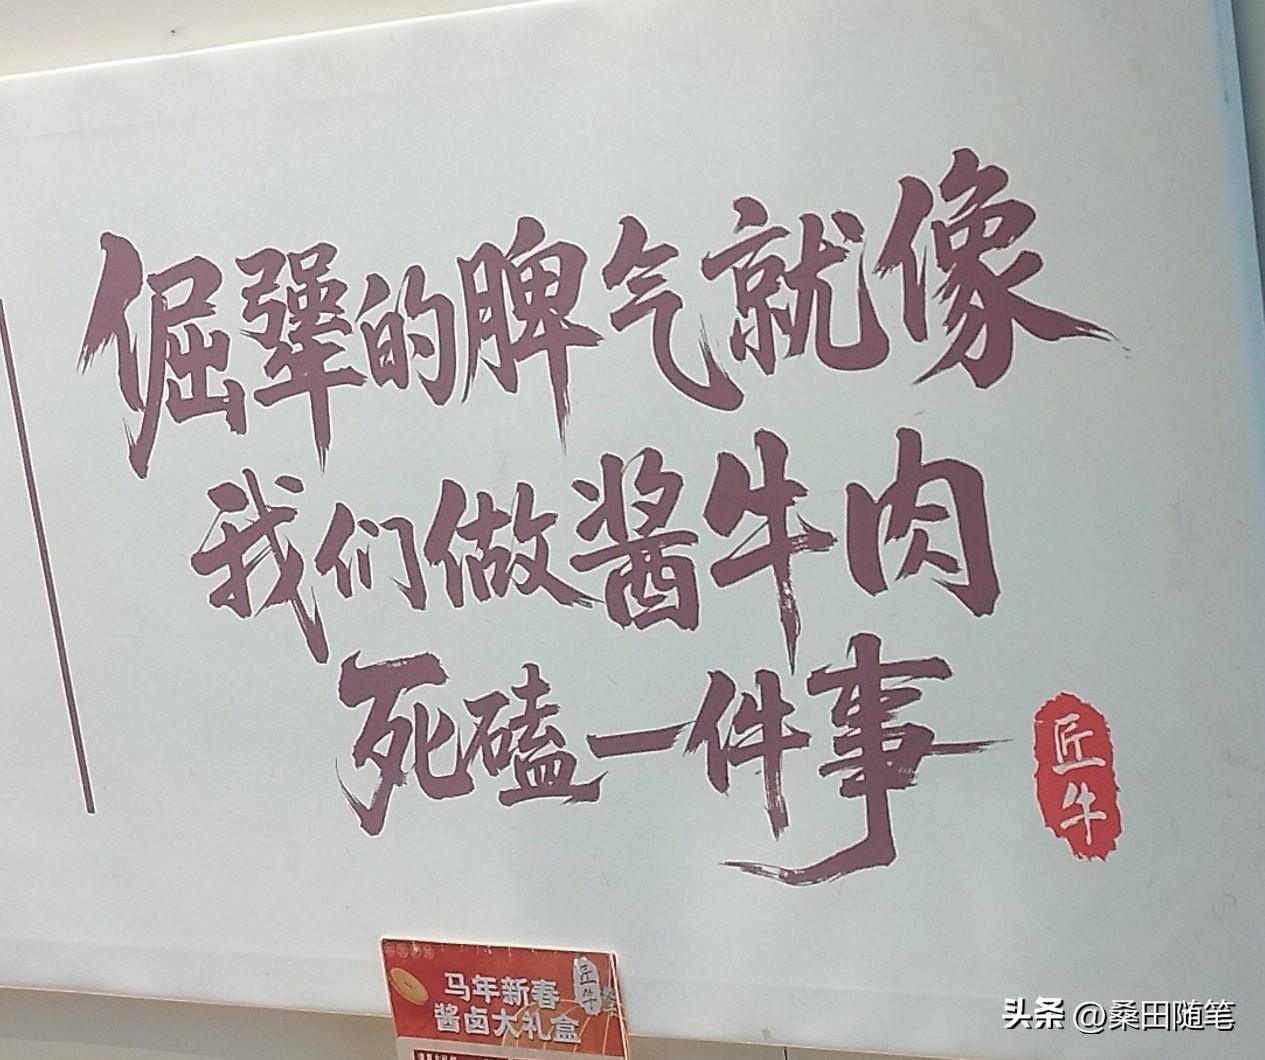 倔犟的脾气就像
我们做酱牛肉
死磕一件事
匠牛
马年新春
酱卤大礼盒
匠牛
头条 @桑田随笔